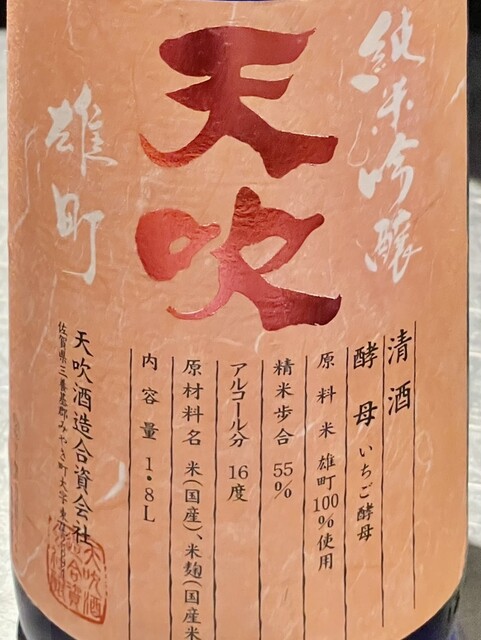 純米吟醸
天吹
雄町
清酒
酵母 いちご酵母
原料米 雄町100%使用
精米歩合 55%
アルコール分 16度
原材料名 米(国産)、米麹(国産米
内容量 1・8L
天吹酒造合資会社
佐賀県三養基郡みやき町大字東尾
天吹酒
造合資